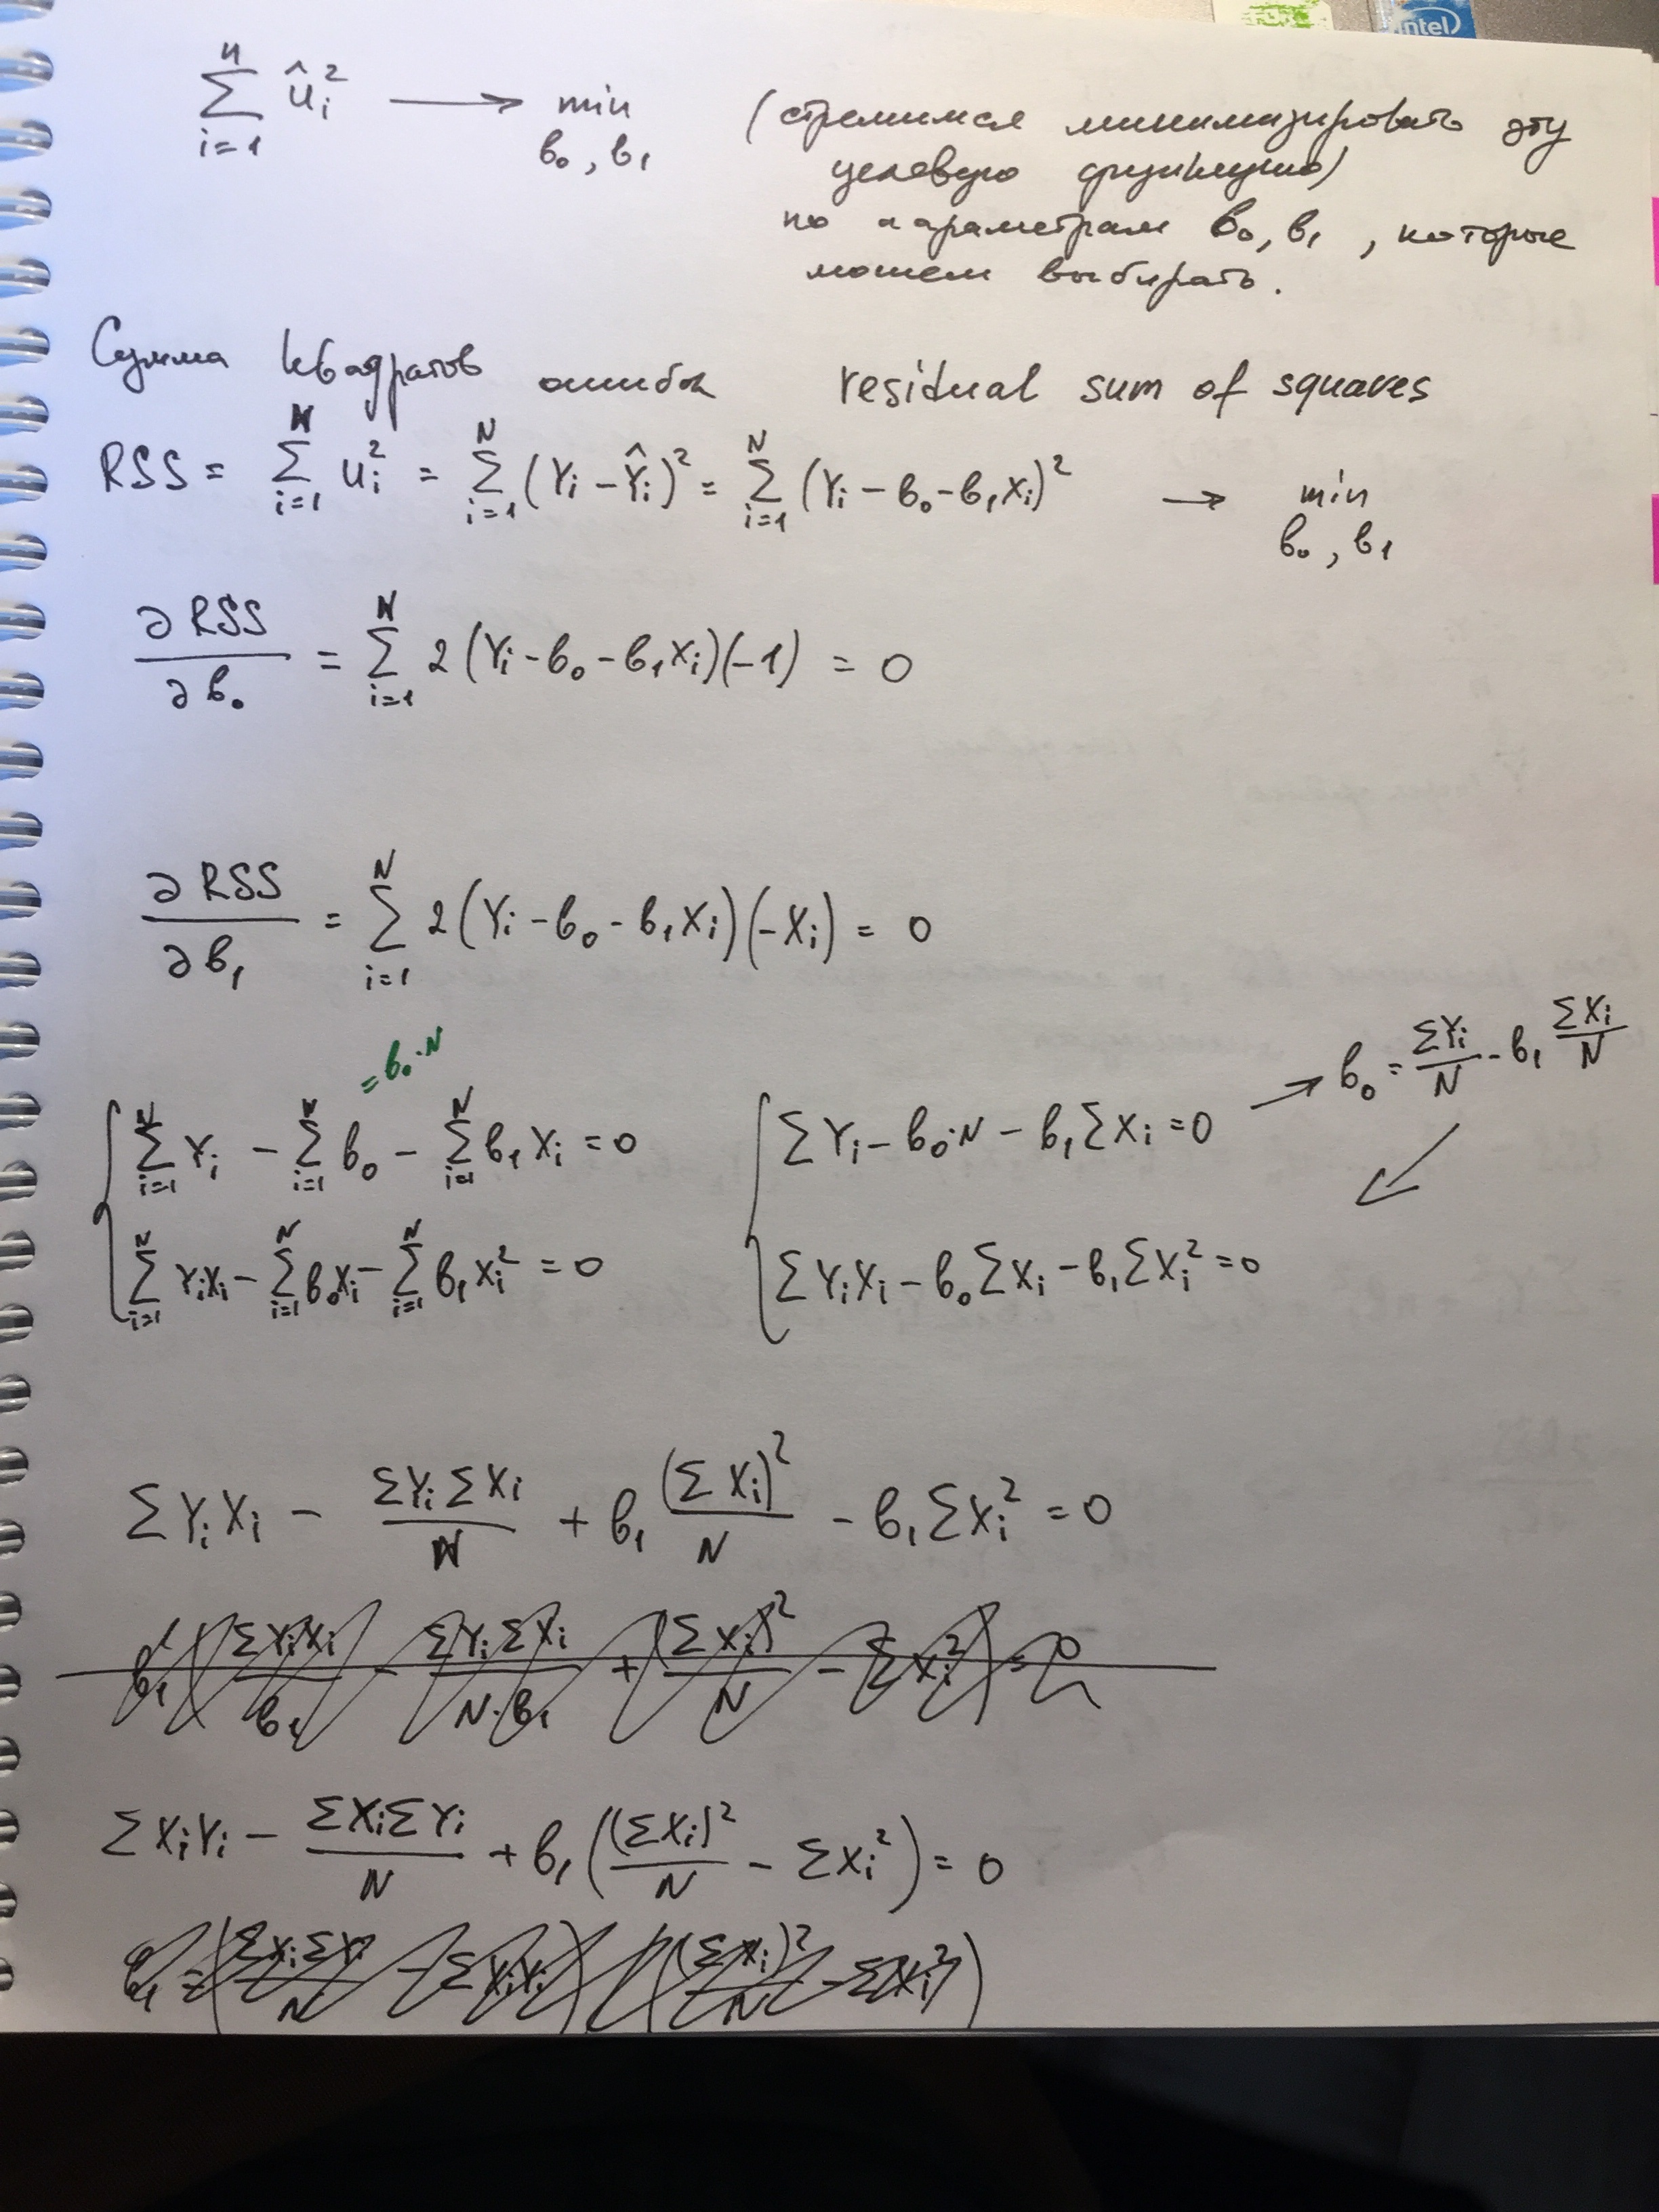 intel
n
∑ û_i² ⟶ min (стремимся минимизировать эту
i=1 b₀, b₁ целевую функцию)
по параметрам b₀, b₁, которые
можем выбирать.
Сумма квадратов ошибок residual sum of squares
RSS = ∑_{i=1}^{N} u_i² = ∑_{i=1}^{N} (Y_i − Ŷ_i)² = ∑_{i=1}^{N} (Y_i − b₀ − b₁X_i)² → min
b₀, b₁
∂RSS/∂b₀ = ∑_{i=1}^{N} 2(Y_i − b₀ − b₁X_i)(−1) = 0
∂RSS/∂b₁ = ∑_{i=1}^{N} 2(Y_i − b₀ − b₁X_i)(−X_i) = 0
= b₀·N
∑_{i=1}^{N} Y_i − ∑_{i=1}^{N} b₀ − ∑_{i=1}^{N} b₁X_i = 0
∑_{i=1}^{N} Y_iX_i − ∑_{i=1}^{N} b₀X_i − ∑_{i=1}^{N} b₁X_i² = 0
∑Y_i − b₀·N − b₁∑X_i = 0 → b₀ = ∑Y_i/N − b₁ ∑X_i/N
∑Y_iX_i − b₀∑X_i − b₁∑X_i² = 0
∑Y_iX_i − ∑Y_i∑X_i/N + b₁ (∑X_i)²/N − b₁∑X_i² = 0
b₁(∑Y_iX_i/b₁ − ∑Y_i∑X_i/(N·b₁) + (∑X_i)²/N − ∑X_i²) = 0
∑X_iY_i − ∑X_i∑Y_i/N + b₁((∑X_i)²/N − ∑X_i²) = 0
b₁ = (∑X_i∑Y_i/N − ∑X_iY_i) / ((∑X_i)²/N − ∑X_i²)